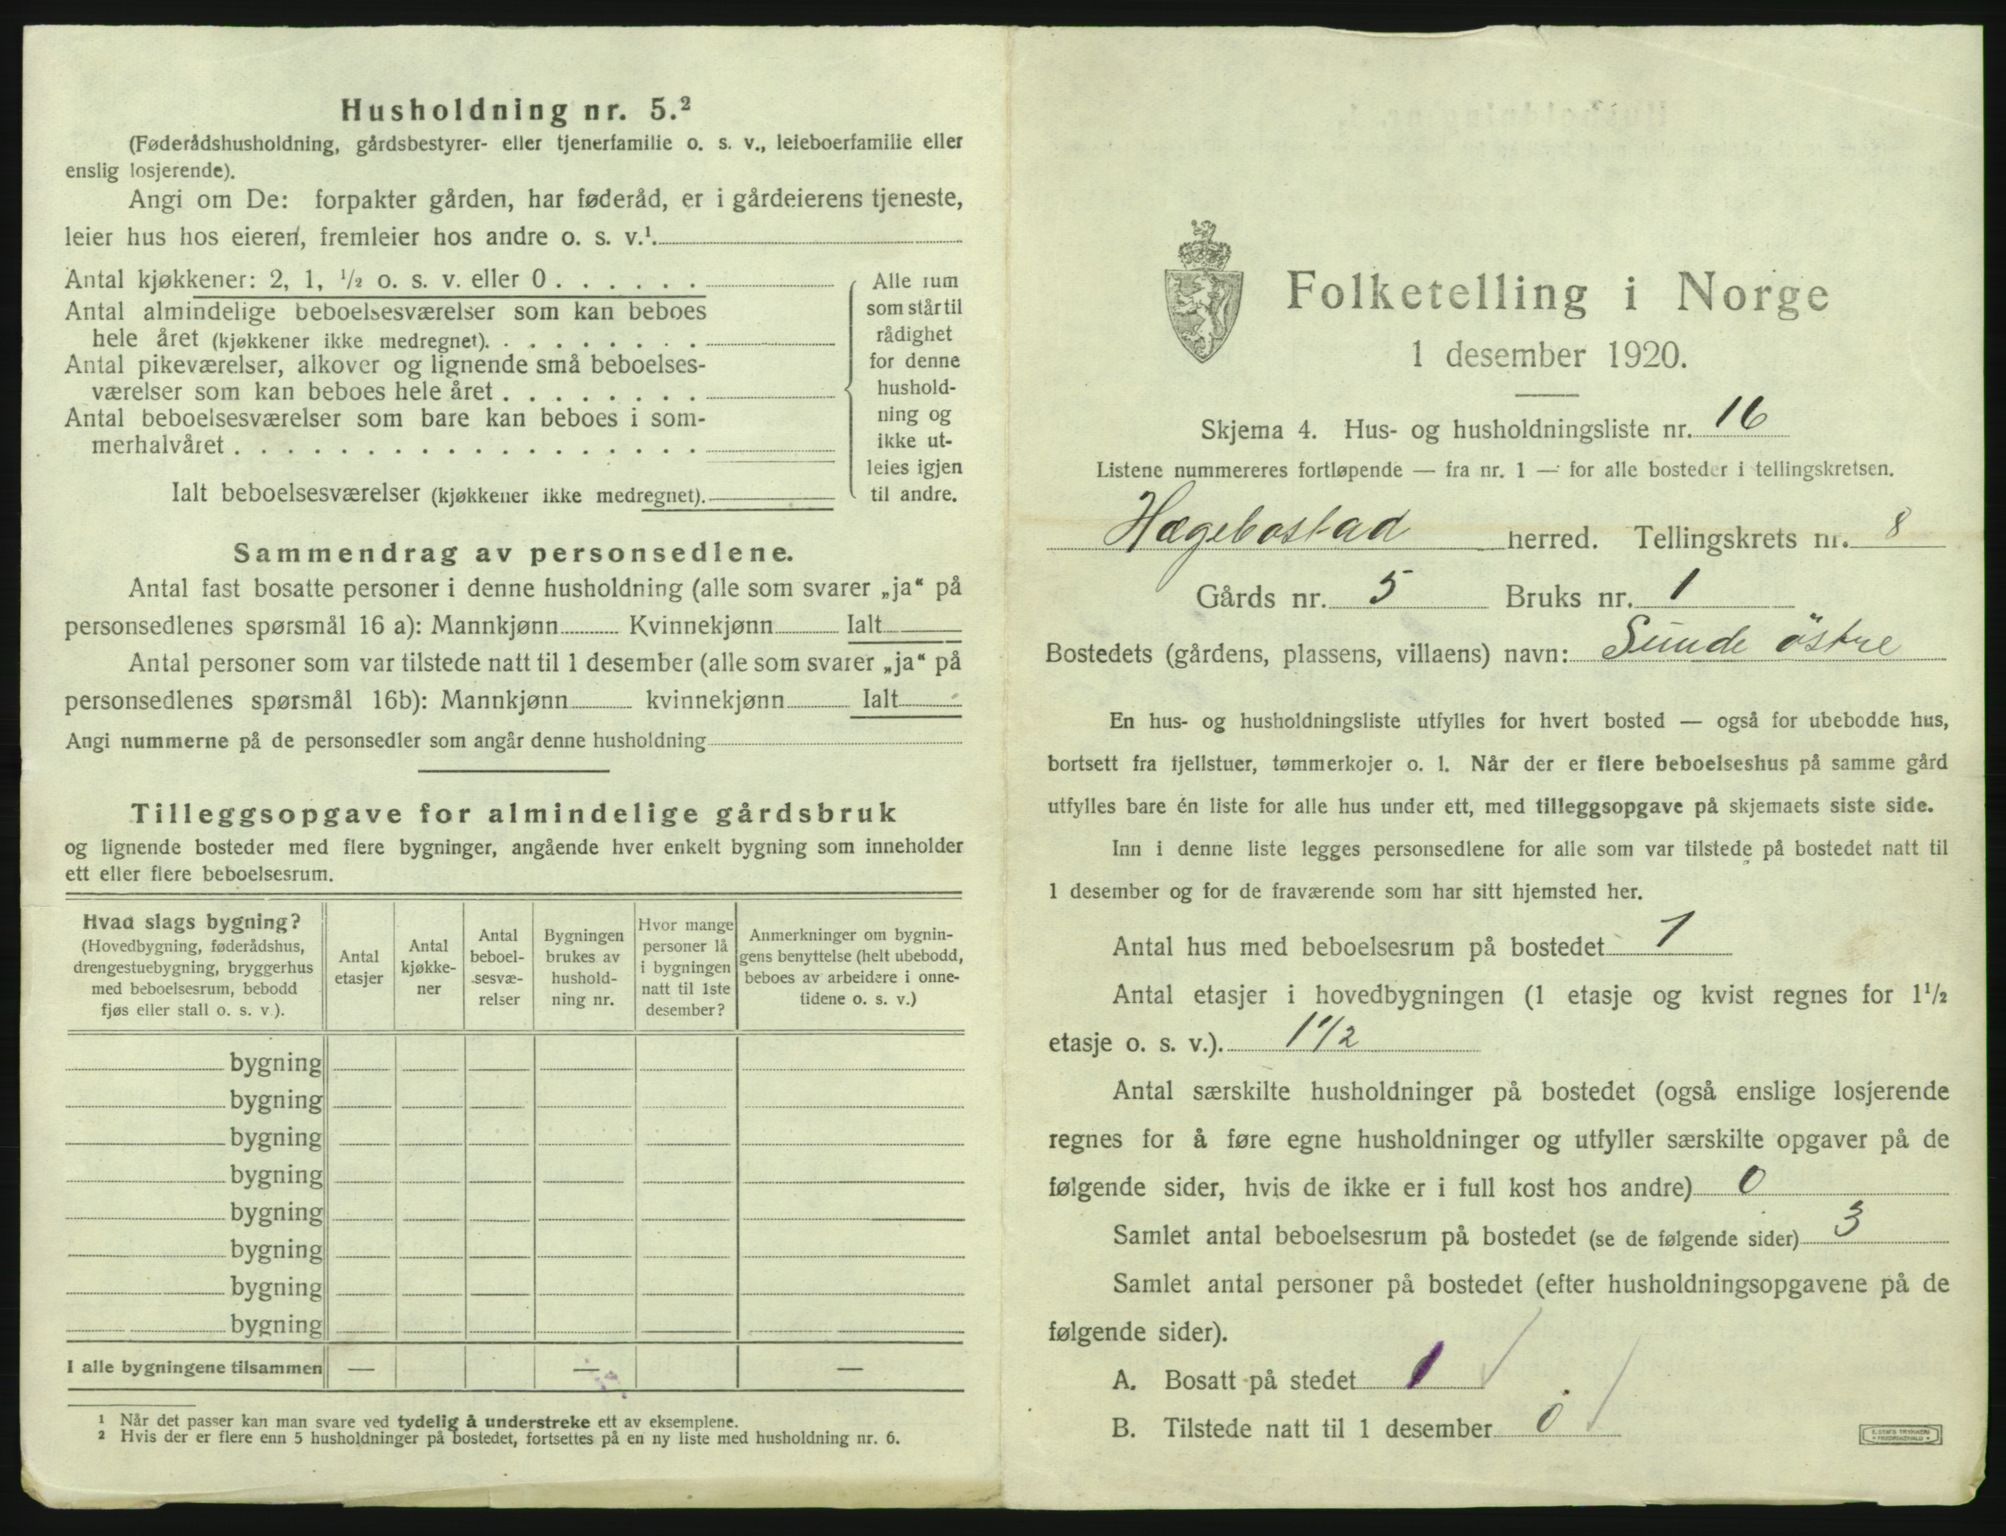 Husholdning nr. 5.²
(Føderådshusholdning, gårdsbestyrer- eller tjenerfamilie o. s. v., leieboerfamilie eller
enslig losjerende).
Angi om De: forpakter gården, har føderåd, er i gårdeierens tjeneste,
leier hus hos eieren, fremleier hos andre o. s. v.¹
Antal kjøkkener: 2, 1, ½ o. s. v. eller 0 . . . . . .
Antal almindelige beboelsesværelser som kan beboes
hele året (kjøkkener ikke medregnet). . . . . . . . .
Antal pikeværelser, alkover og lignende små beboelses-
værelser som kan beboes hele året . . . . . . . .
Antal beboelsesværelser som bare kan beboes i som-
merhalvåret . . . . . . . . . . . . . . . . . .
Ialt beboelsesværelser (kjøkkener ikke medregnet).
Alle rum
som står til
rådighet
for denne
hushold-
ning og
ikke ut-
leies igjen
til andre.
Sammendrag av personsedlene.
Antal fast bosatte personer i denne husholdning (alle som svarer „ja“ på
personsedlenes spørsmål 16 a): Mannkjønn Kvinnekjønn Ialt
Antal personer som var tilstede natt til 1 desember (alle som svarer „ja“ på
personsedlenes spørsmål 16b): Mannkjønn kvinnekjønn Ialt
Angi nummerne på de personsedler som angår denne husholdning
Tilleggsopgave for almindelige gårdsbruk
og lignende bosteder med flere bygninger, angående hver enkelt bygning som inneholder
ett eller flere beboelsesrum.
Hvad slags bygning?
(Hovedbygning, føderådshus,
drengestuebygning, bryggerhus
med beboelsesrum, bebodd
fjøs eller stall o. s. v.).
Antal
etasjer
Antal
kjøkke-
ner
Antal
beboel-
sesvæ-
relser
Bygningen
brukes av
hushold-
ning nr.
Hvor mange
personer lå
i bygningen
natt til 1ste
desember?
Anmerkninger om bygnin-
gens benyttelse (helt ubebodd,
beboes av arbeidere i onne-
tidene o. s. v.)
bygning
bygning
bygning
bygning
bygning
bygning
bygning
bygning
I alle bygningene tilsammen — — —
¹ Når det passer kan man svare ved tydelig å understreke ett av eksemplene.
² Hvis der er flere enn 5 husholdninger på bostedet, fortsettes på en ny liste med husholdning nr. 6.
Folketelling i Norge
1 desember 1920.
Skjema 4. Hus- og husholdningsliste nr. 16
Listene nummereres fortløpende — fra nr. 1 — for alle bosteder i tellingskretsen.
Hægebostad herred. Tellingskrets nr. 8
Gårds nr. 5 Bruks nr. 1
Bostedets (gårdens, plassens, villaens) navn: Sunde östre
En hus- og husholdningsliste utfylles for hvert bosted — også for ubebodde hus,
bortsett fra fjellstuer, tømmerkojer o. l. Når der er flere beboelseshus på samme gård
utfylles bare én liste for alle hus under ett, med tilleggsopgave på skjemaets siste side.
Inn i denne liste legges personsedlene for alle som var tilstede på bostedet natt til
1 desember og for de fraværende som har sitt hjemsted her.
Antal hus med beboelsesrum på bostedet 1
Antal etasjer i hovedbygningen (1 etasje og kvist regnes for 1½
etasje o. s. v.). 1½
Antal særskilte husholdninger på bostedet (også enslige losjerende
regnes for å føre egne husholdninger og utfyller særskilte opgaver på de
følgende sider, hvis de ikke er i full kost hos andre) 0
Samlet antal beboelsesrum på bostedet (se de følgende sider) 3
Samlet antal personer på bostedet (efter husholdningsopgavene på de
følgende sider).
A. Bosatt på stedet 1
B. Tilstede natt til 1 desember 0